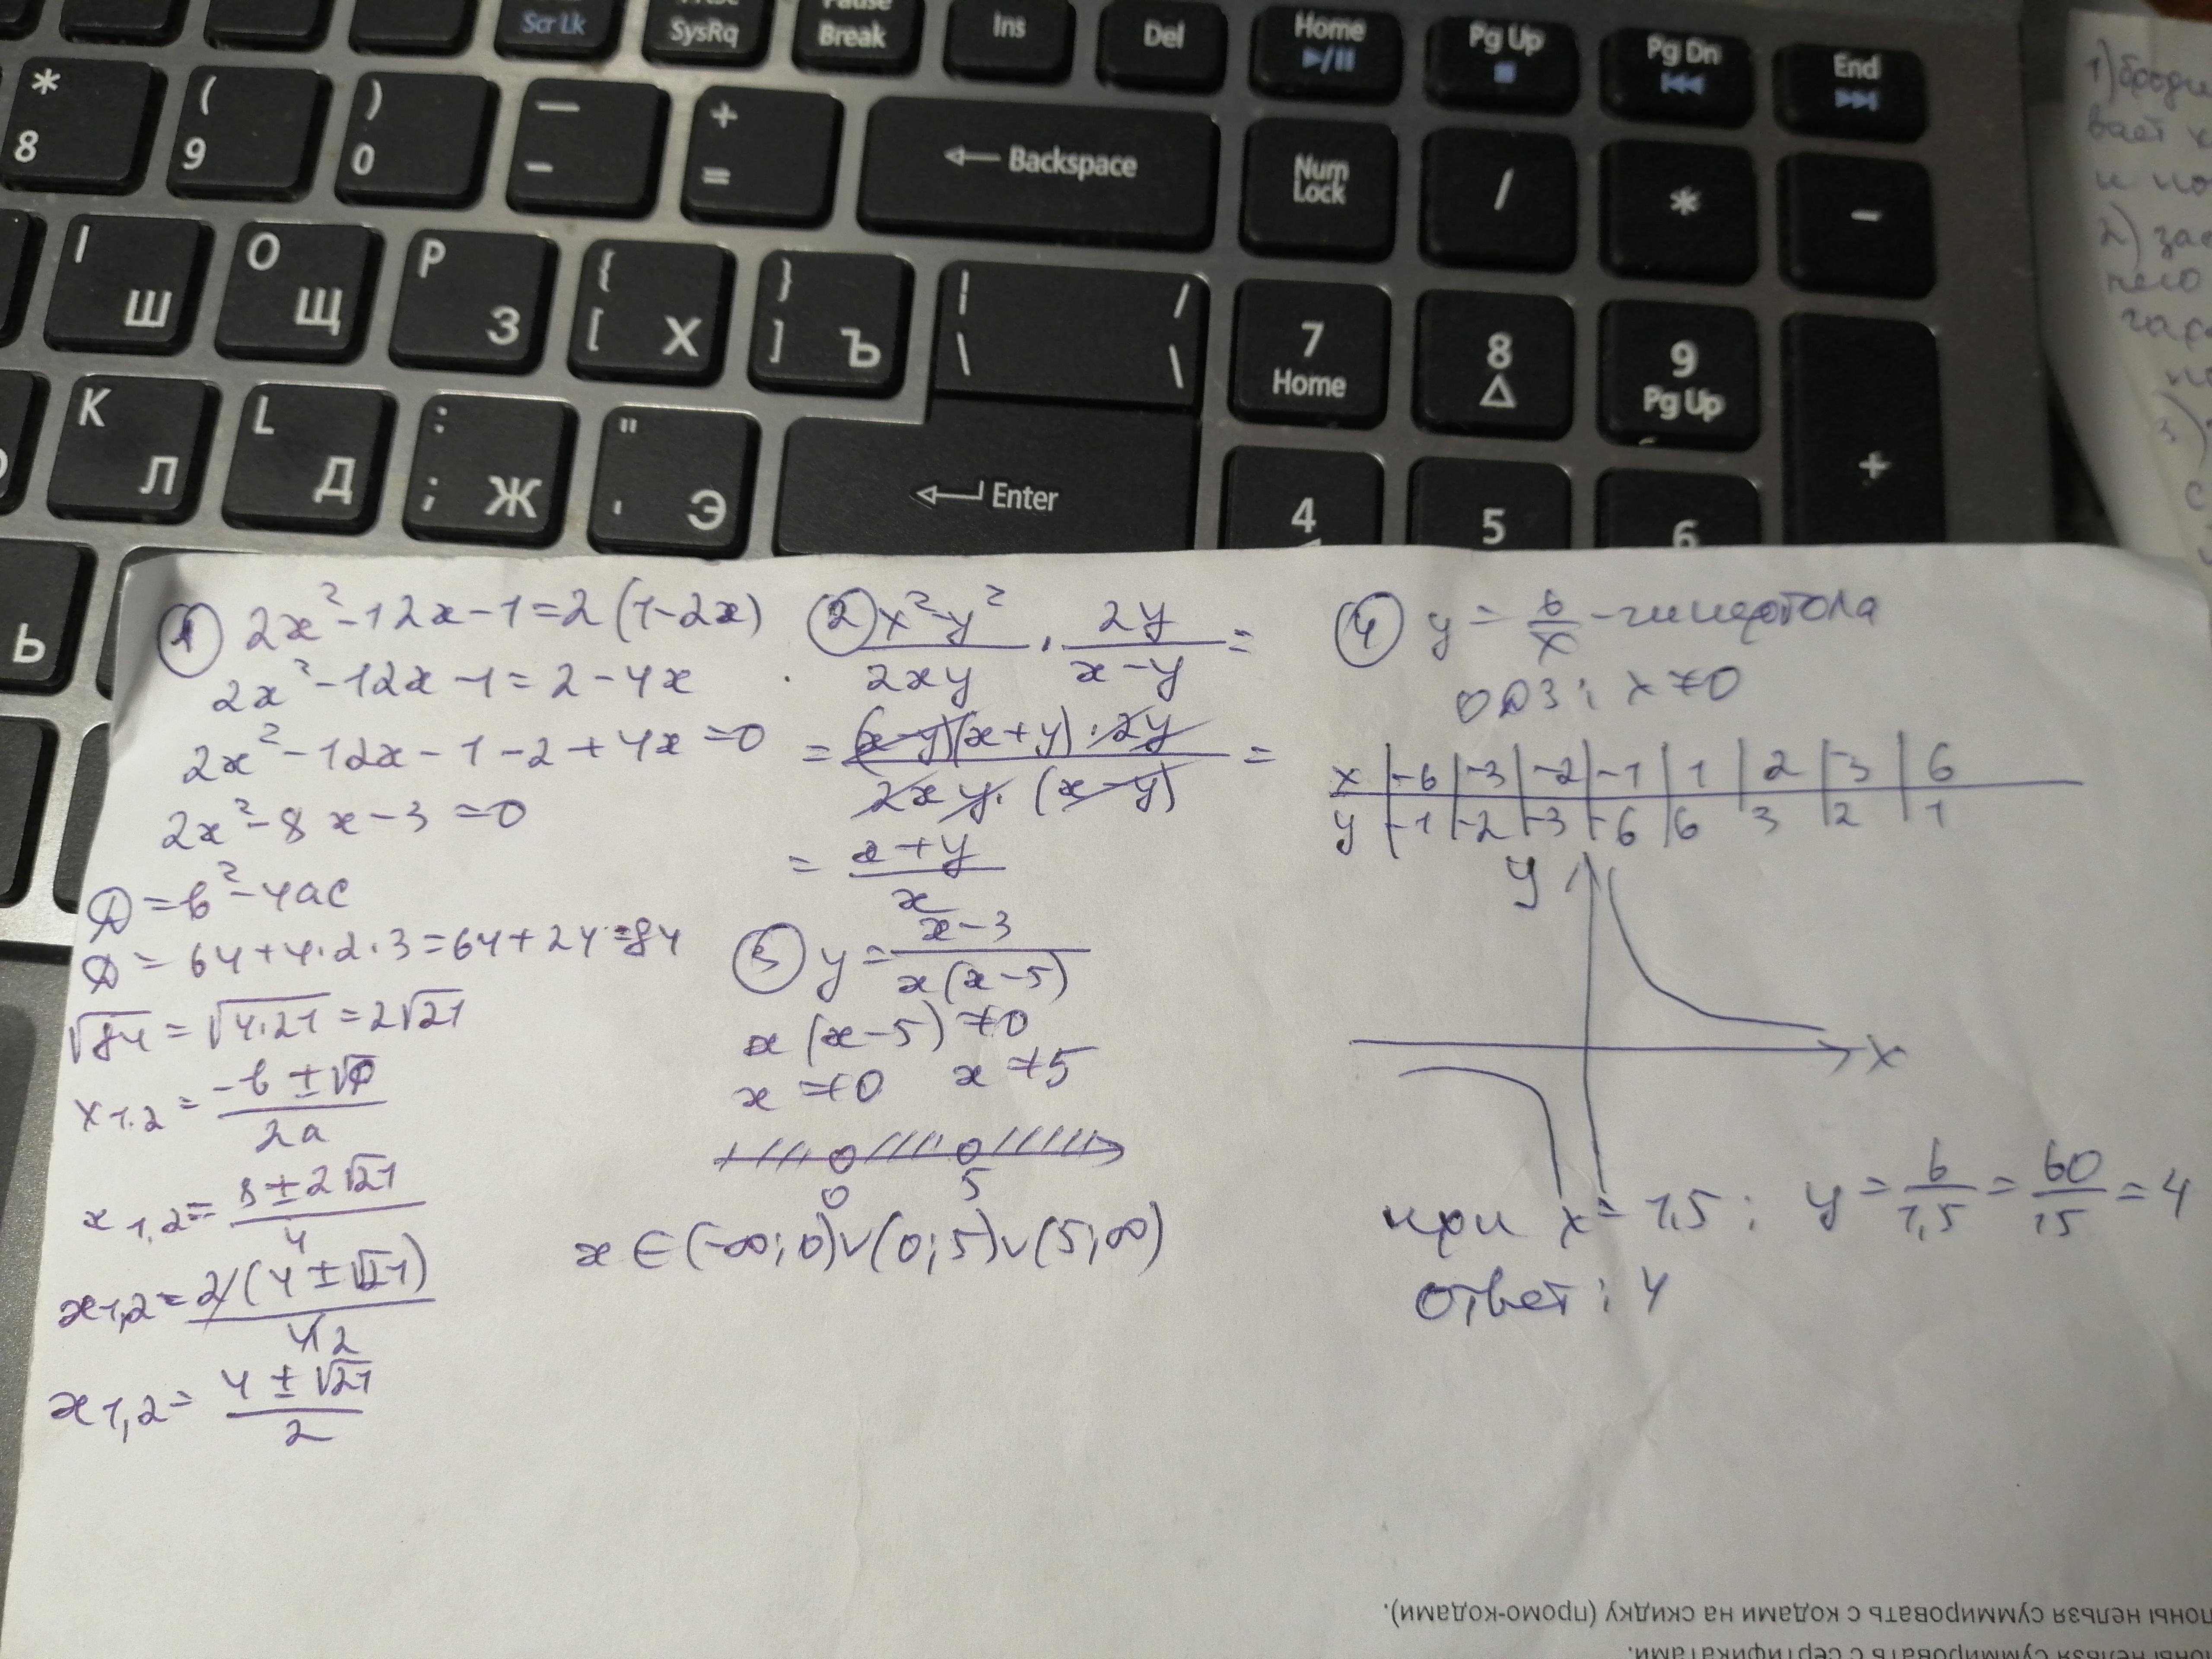 Scr Lk
SysRq
Pause
Break
Ins
Del
Home
Pg Up
Pg Dn
End
* 8
( 9
) 0
— -
+ =
Backspace
Num Lock
/
*
-
I Ш
O Щ
P З
{ [ Х
} ] Ъ
| / \ \
7 Home
8
9 Pg Up
+
K Л
L Д
: ; Ж
" ' Э
Enter
4
5
6
Ь
1)
2)
3)
① 2x²-12x-1=2(1-2x)
2x²-12x-1=2-4x
2x²-12x-1-2+4x=0
2x²-8x-3=0
D=b²-4ac
D=64+4·2·3=64+24=84
√84=√4·21=2√21
x1,2=(-b±√D)/2a
x1,2=(8±2√21)/4
x1,2=2(4±√21)/4 2
x1,2=(4±√21)/2
② (x²-y²)/2xy · 2y/(x-y)=
=(x-y)(x+y)·2y/2xy·(x-y)=
=(x+y)/x
③ y=(x-3)/x(x-5)
x(x-5)≠0
x≠0 x≠5
0 5
x∈(-∞;0)∪(0;5)∪(5;∞)
④ y=6/x -гипербола
ОДЗ: x≠0
x|-6|-3|-2|-1|1|2|3|6
y|-1|-2|-3|-6|6|3|2|1
y
x
при x=1,5: y=6/1,5=60/15=4
ответ: 4
поны нельзя суммировать с кодами на скидку (промо-кодами).
поны нельзя суммировать с сертификатами.